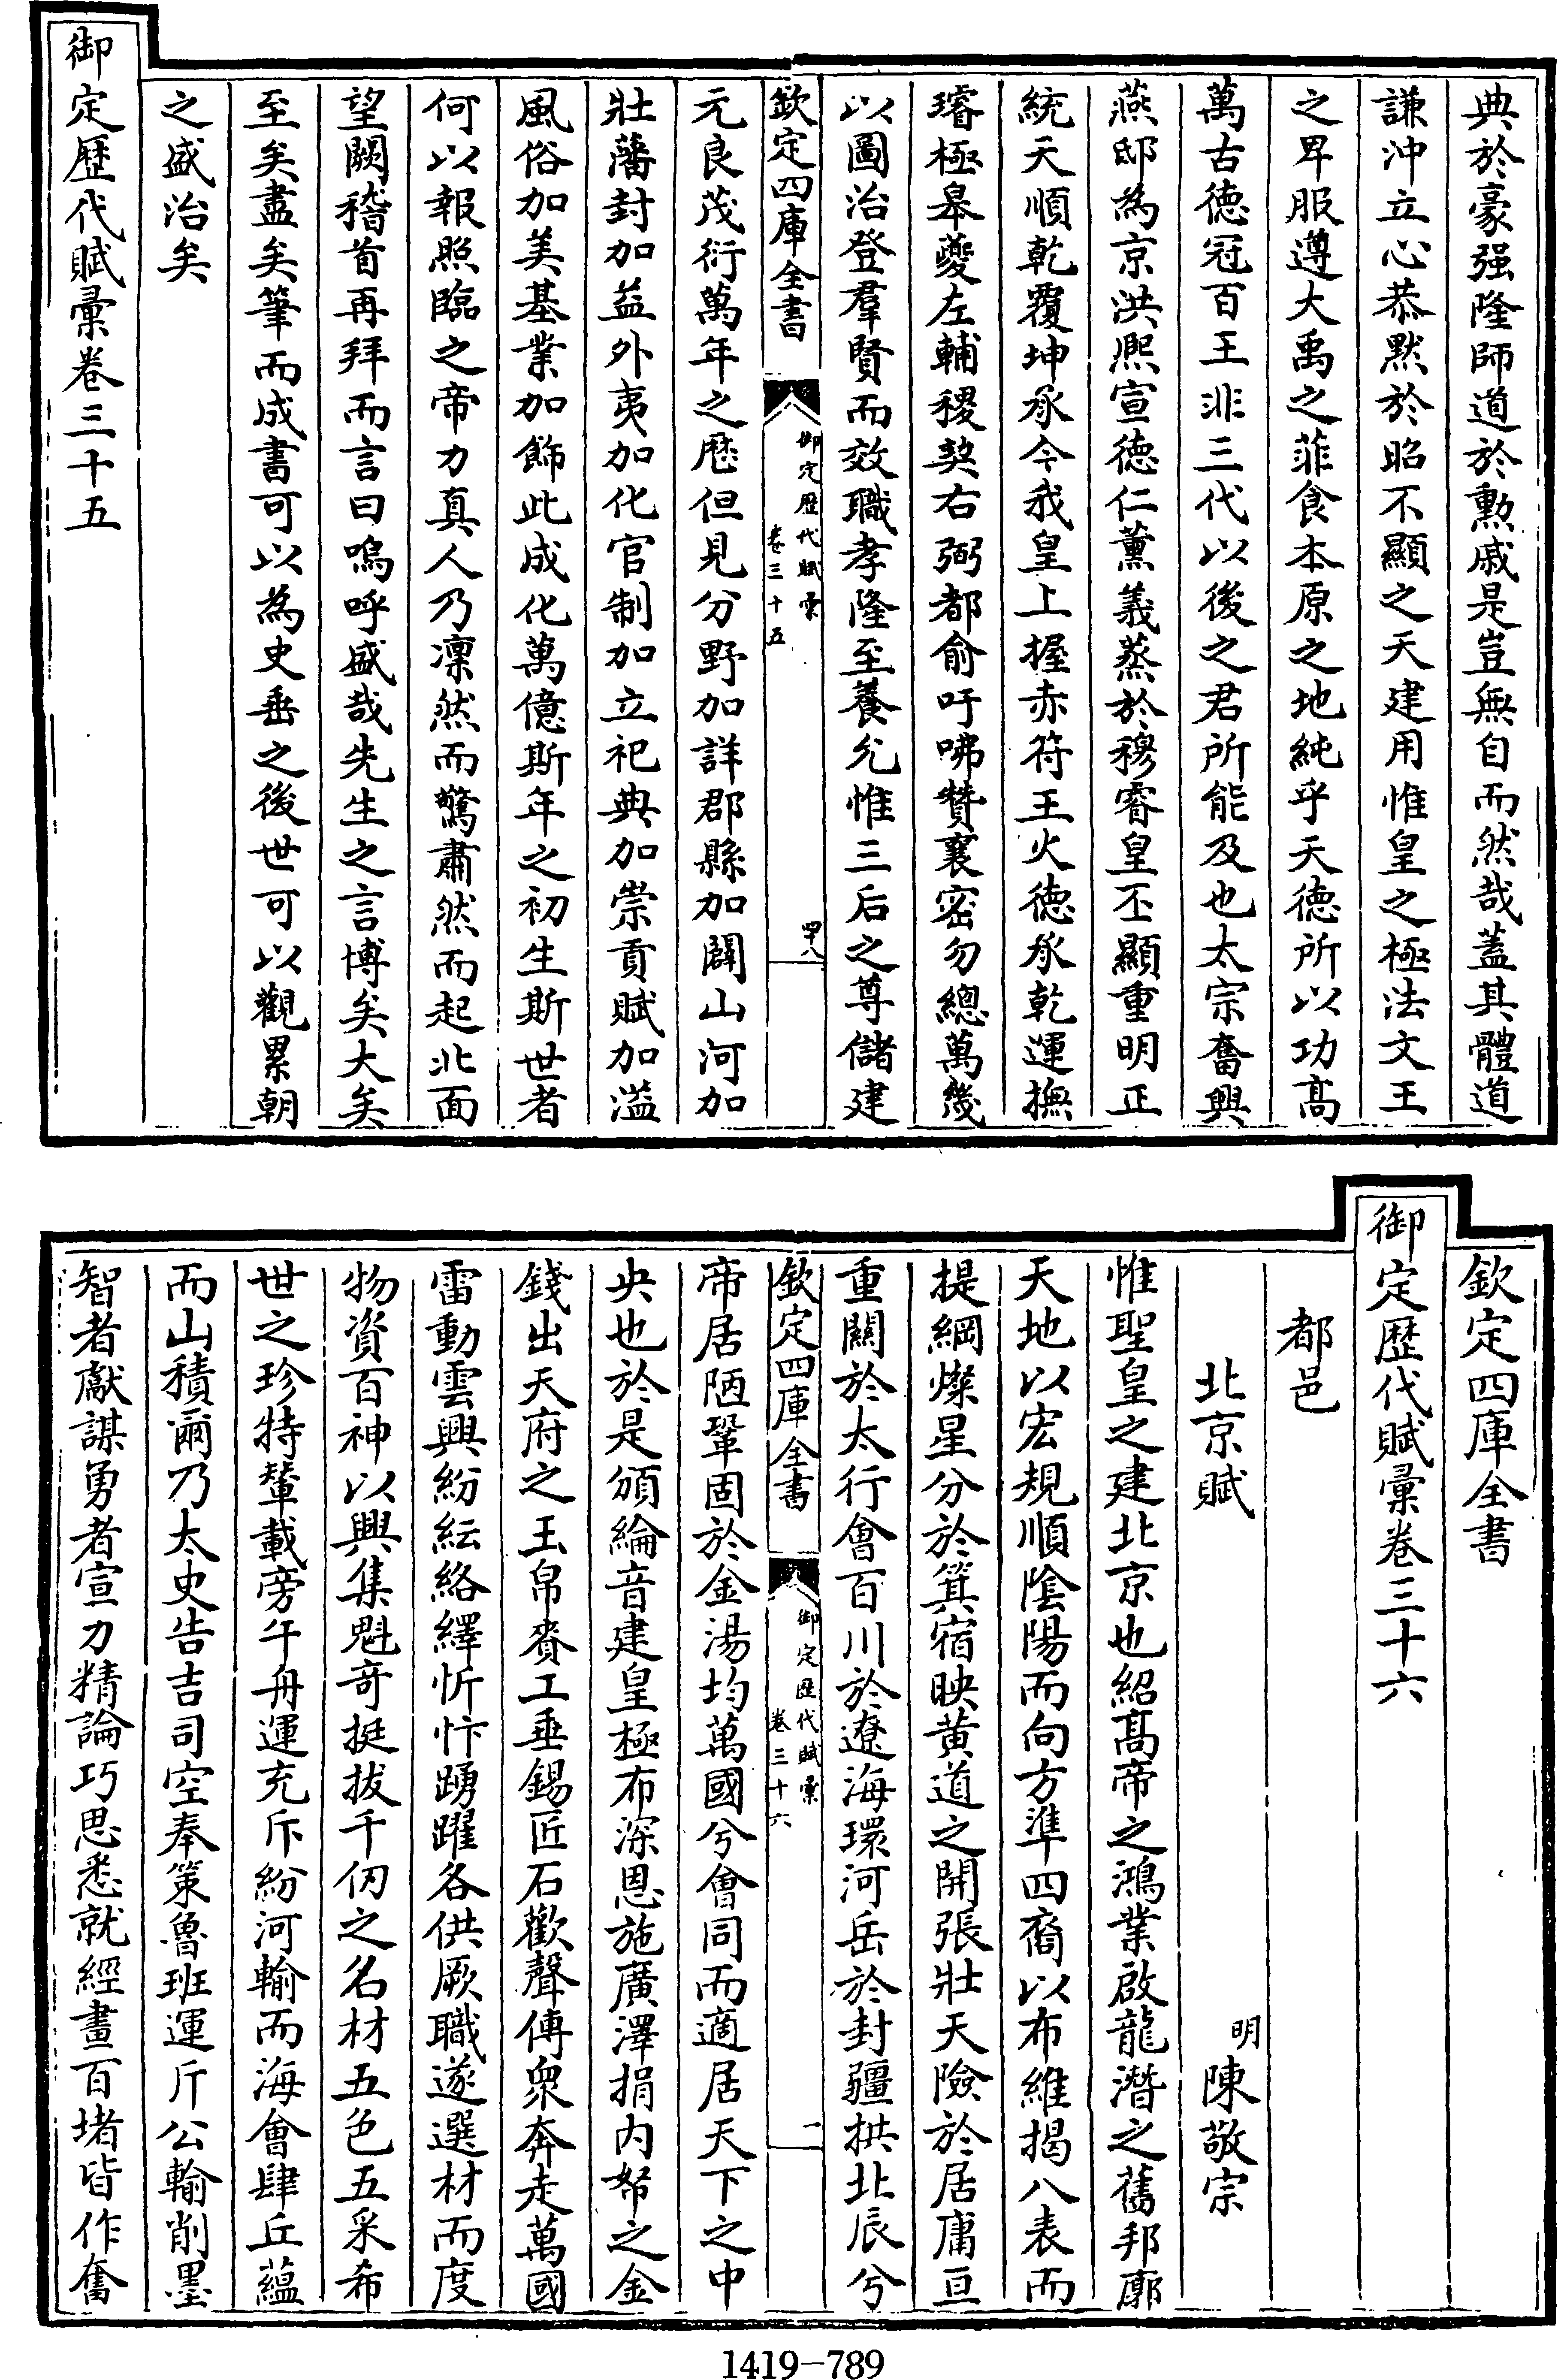 典於豪强隆師道於勲戚是豈無自而然哉蓋其體道
謙沖立心恭黙於昭不顯之天建用惟皇之極法文王
之卑服遵大禹之菲食本原之地純乎天德所以功髙
萬古德冠百王非三代以後之君所能及也太宗奮興
燕邸為京洪熙宣德仁薰義蒸於穆睿皇丕顯重明正
統天順乾覆坤承今我皇上握赤符王火德承乾運撫
璿極皋夔左輔稷契右弼都俞吁咈贊襄密勿總萬幾
以圖治登羣賢而效職孝隆至養允惟三后之尊儲建
欽定四庫全書
御定歴代賦彙
卷三十五
四十八
元良茂衍萬年之歴但見分野加詳郡縣加闢山河加
壯藩封加益外夷加化官制加立祀典加崇貢賦加溢
風俗加美基業加飾此成化萬億斯年之初生斯世者
何以報照臨之帝力真人乃凜然而驚肅然而起北面
望闕稽首再拜而言曰嗚呼盛哉先生之言博矣大矣
至矣盡矣筆而成書可以為史垂之後世可以觀累朝
之盛治矣
御定歴代賦彙卷三十五
欽定四庫全書
御定歴代賦彙卷三十六
都邑
北京賦
明陳敬宗
惟聖皇之建北京也紹髙帝之鴻業啟龍潛之舊邦廓
天地以宏規順陰陽而向方準四裔以布維揭八表而
提綱燦星分於箕宿映黄道之開張壯天險於居庸亘
重關於太行會百川於遼海環河岳於封疆拱北辰兮
欽定四庫全書
御定歴代賦彙
卷三十六
一
帝居陋鞏固於金湯均萬國兮會同而適居天下之中
央也於是頒綸音建皇極布深恩施廣澤捐内帑之金
錢出天府之玉帛賚工垂錫匠石歡聲傳衆奔走萬國
雷動雲興紛紜絡繹忻忭踴躍各供厥職遂選材而度
物資百神以興集魁竒挺拔千仞之名材五色五采希
世之珍特輦載旁午舟運充斥紛河輸而海會肆丘藴
而山積爾乃太史告吉司空奉策魯班運斤公輸削墨
智者獻謀勇者宣力精論巧思悉就經畫百堵皆作奮
1419-789